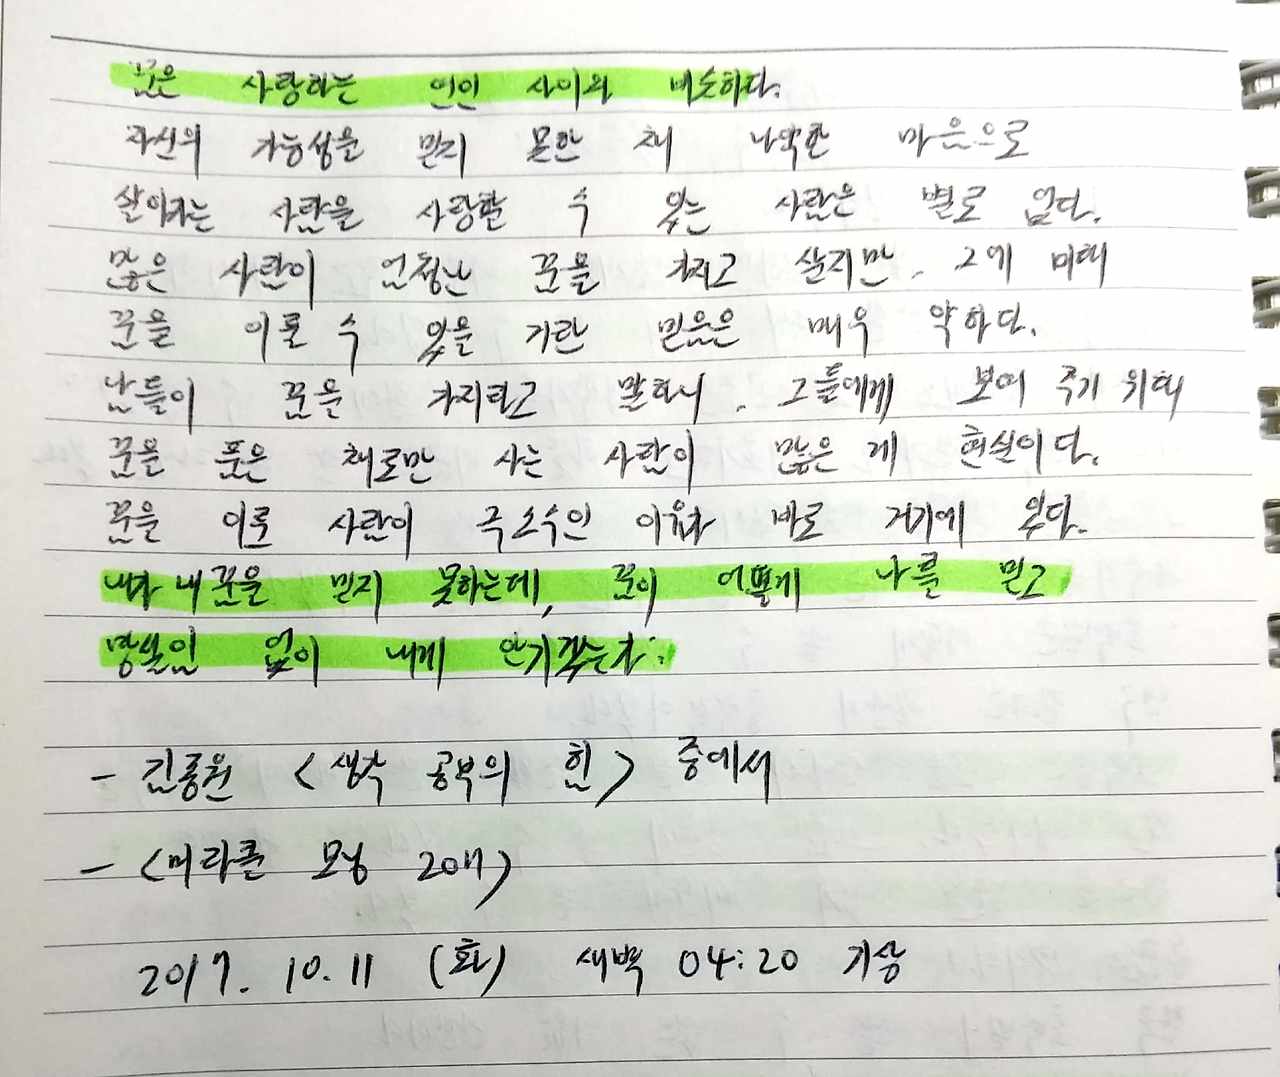 꿈은 사랑하는 연인 사이와 비슷하다.
자신의 가능성을 믿지 못한 채 나약한 마음으로
살아가는 사람을 사랑할 수 있는 사람은 별로 없다.
많은 사람이 엄청난 꿈을 가지고 살지만, 그에 비해
꿈을 이룰 수 있을 거란 믿음은 매우 약하다.
남들이 꿈을 가지라고 말하니, 그들에게 보여 주기 위해
꿈을 품은 채로만 사는 사람이 많은 게 현실이다.
꿈을 이룬 사람이 극소수인 이유가 바로 거기에 있다.
내가 내 꿈을 믿지 못하는데, 꿈이 어떻게 나를 믿고
망설임 없이 내게 안기겠는가.
- 김종원 <생각 공부의 힘> 중에서
- <미라클 모닝 2017>
2017. 10. 11 (화) 새벽 04:20 기상